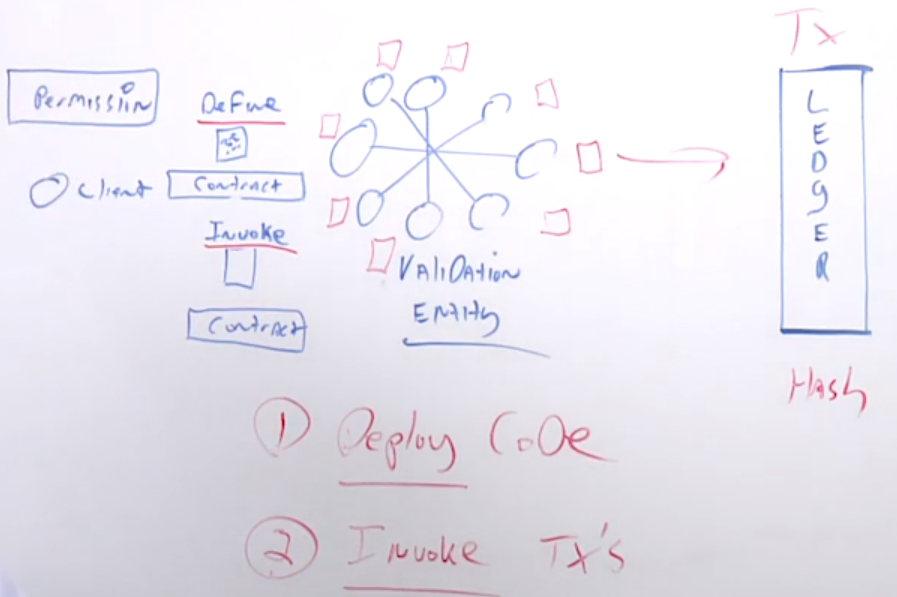 Permission
Client
Define
Contract
Invoke
Contract
Validation
Entity
Tx
LEDGER
Hash
1 Deploy Code
2 Invoke Tx's